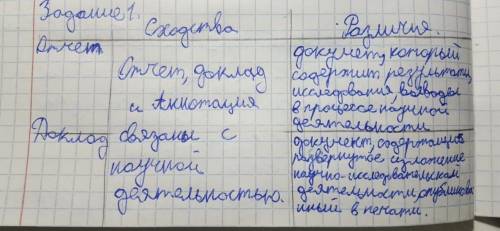 Задание 1.
Сходства
Различия.
Отчет
Отчет, доклад
и Аннотация
связаны с
научной
деятельностью.
документ, который
содержит результаты
исследования, выводы
в процессе научной
деятельности
Доклад
документ, содержащий
развернутое изложение
научно-исследовательской
деятельности, опубликова
нный в печати.